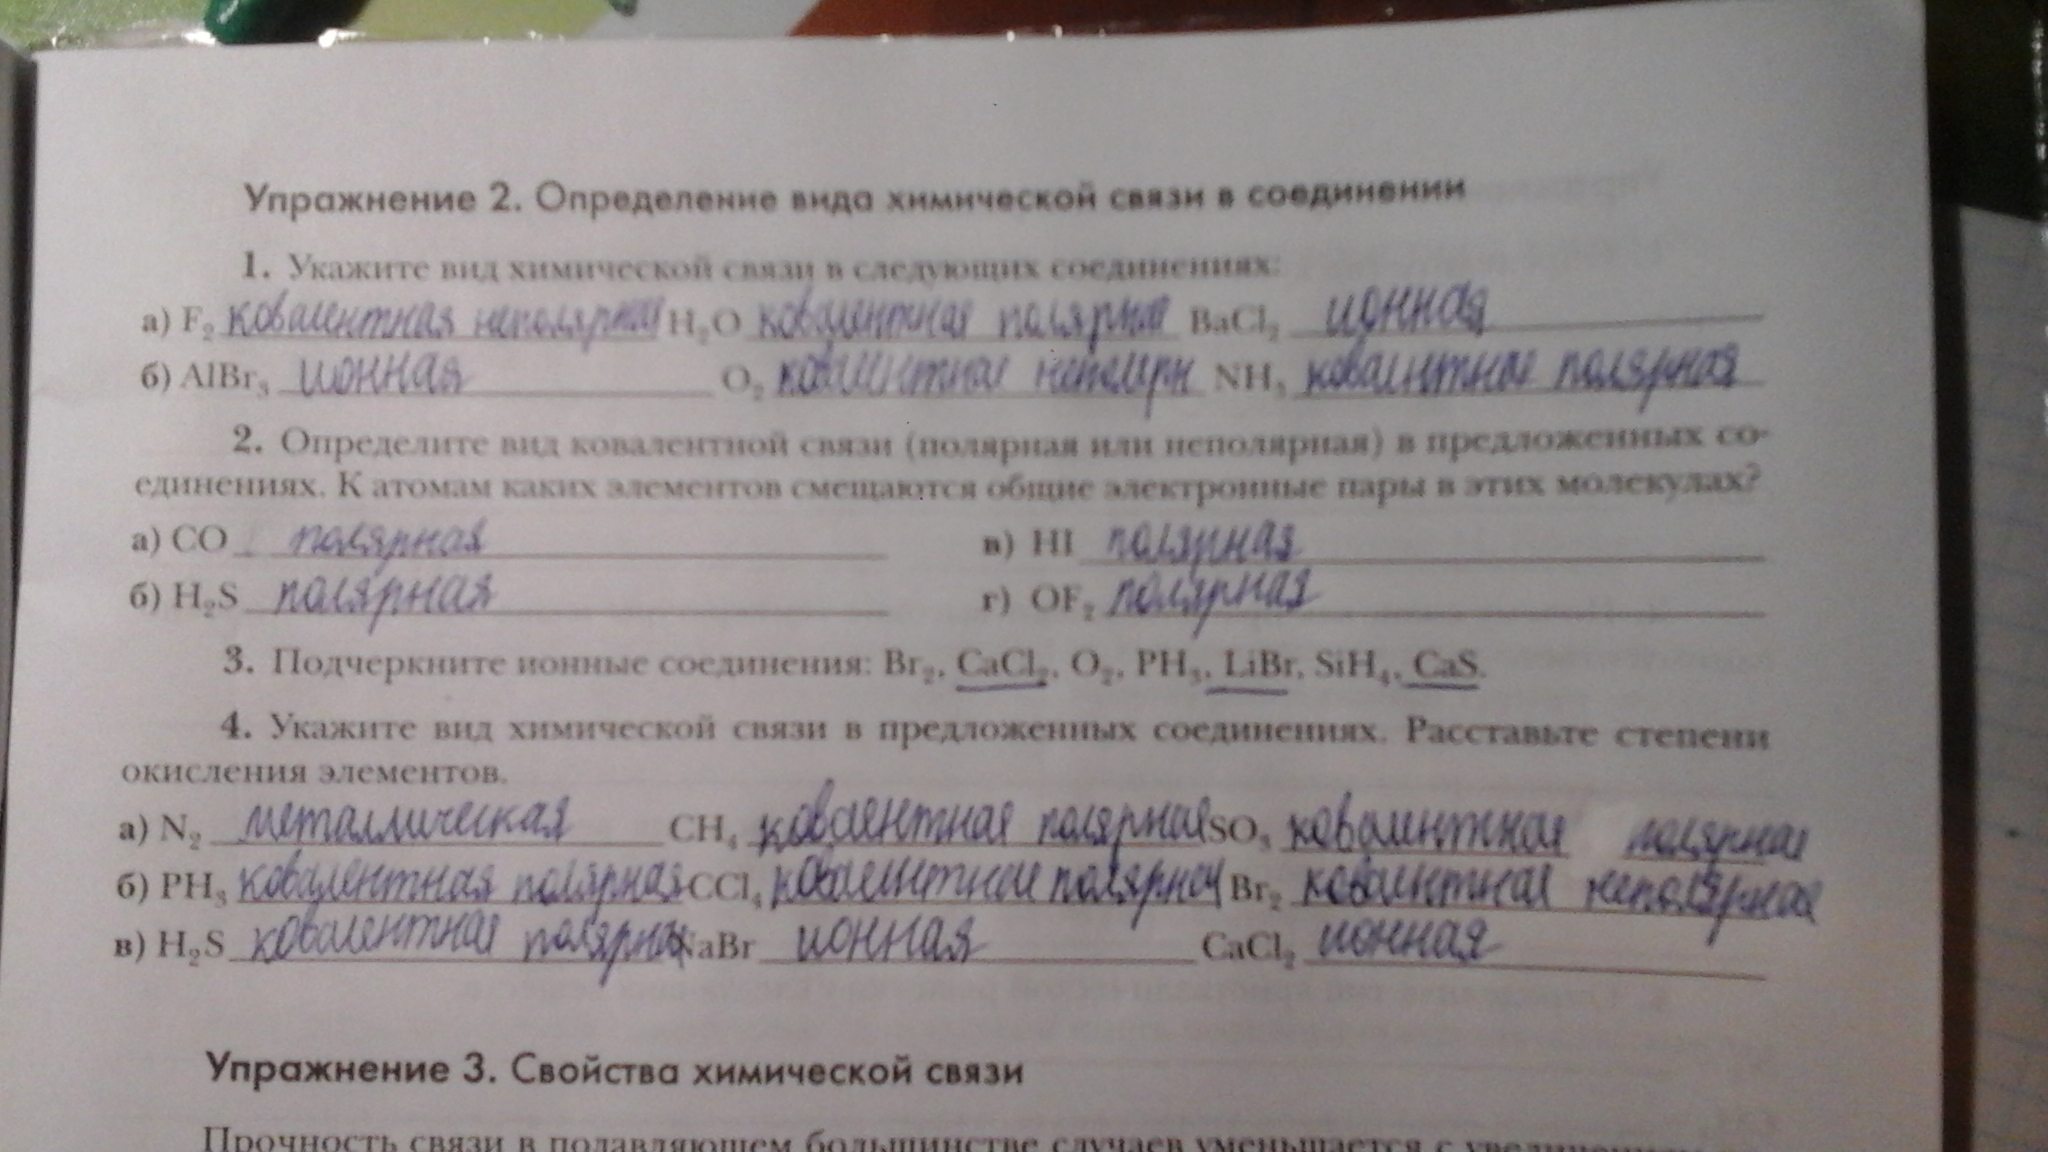 Упражнение 2. Определение вида химической связи в соединении
1. Укажите вид химической связи в следующих соединениях:
а) F₂ ковалентная неполярная H₂O ковалентная полярная BaCl₂ ионная
б) AlBr₃ ионная O₂ ковалентная неполярн NH₃ ковалентная полярная
2. Определите вид ковалентной связи (полярная или неполярная) в предложенных со-
единениях. К атомам каких элементов смещаются общие электронные пары в этих молекулах?
а) CO полярная в) HI полярная
б) H₂S полярная г) OF₂ полярная
3. Подчеркните ионные соединения: Br₂, CaCl₂, O₂, PH₃, LiBr, SiH₄, CaS.
4. Укажите вид химической связи в предложенных соединениях. Расставьте степени
окисления элементов.
а) N₂ металлическая CH₄ ковалентная полярная SO₃ ковалентная полярная
б) PH₃ ковалентная полярная CCl₄ ковалентная полярная Br₂ ковалентная неполярная
в) H₂S ковалентная полярная NaBr ионная CaCl₂ ионная
Упражнение 3. Свойства химической связи
Прочность связи в подавляющем большинстве случаев уменьшается с